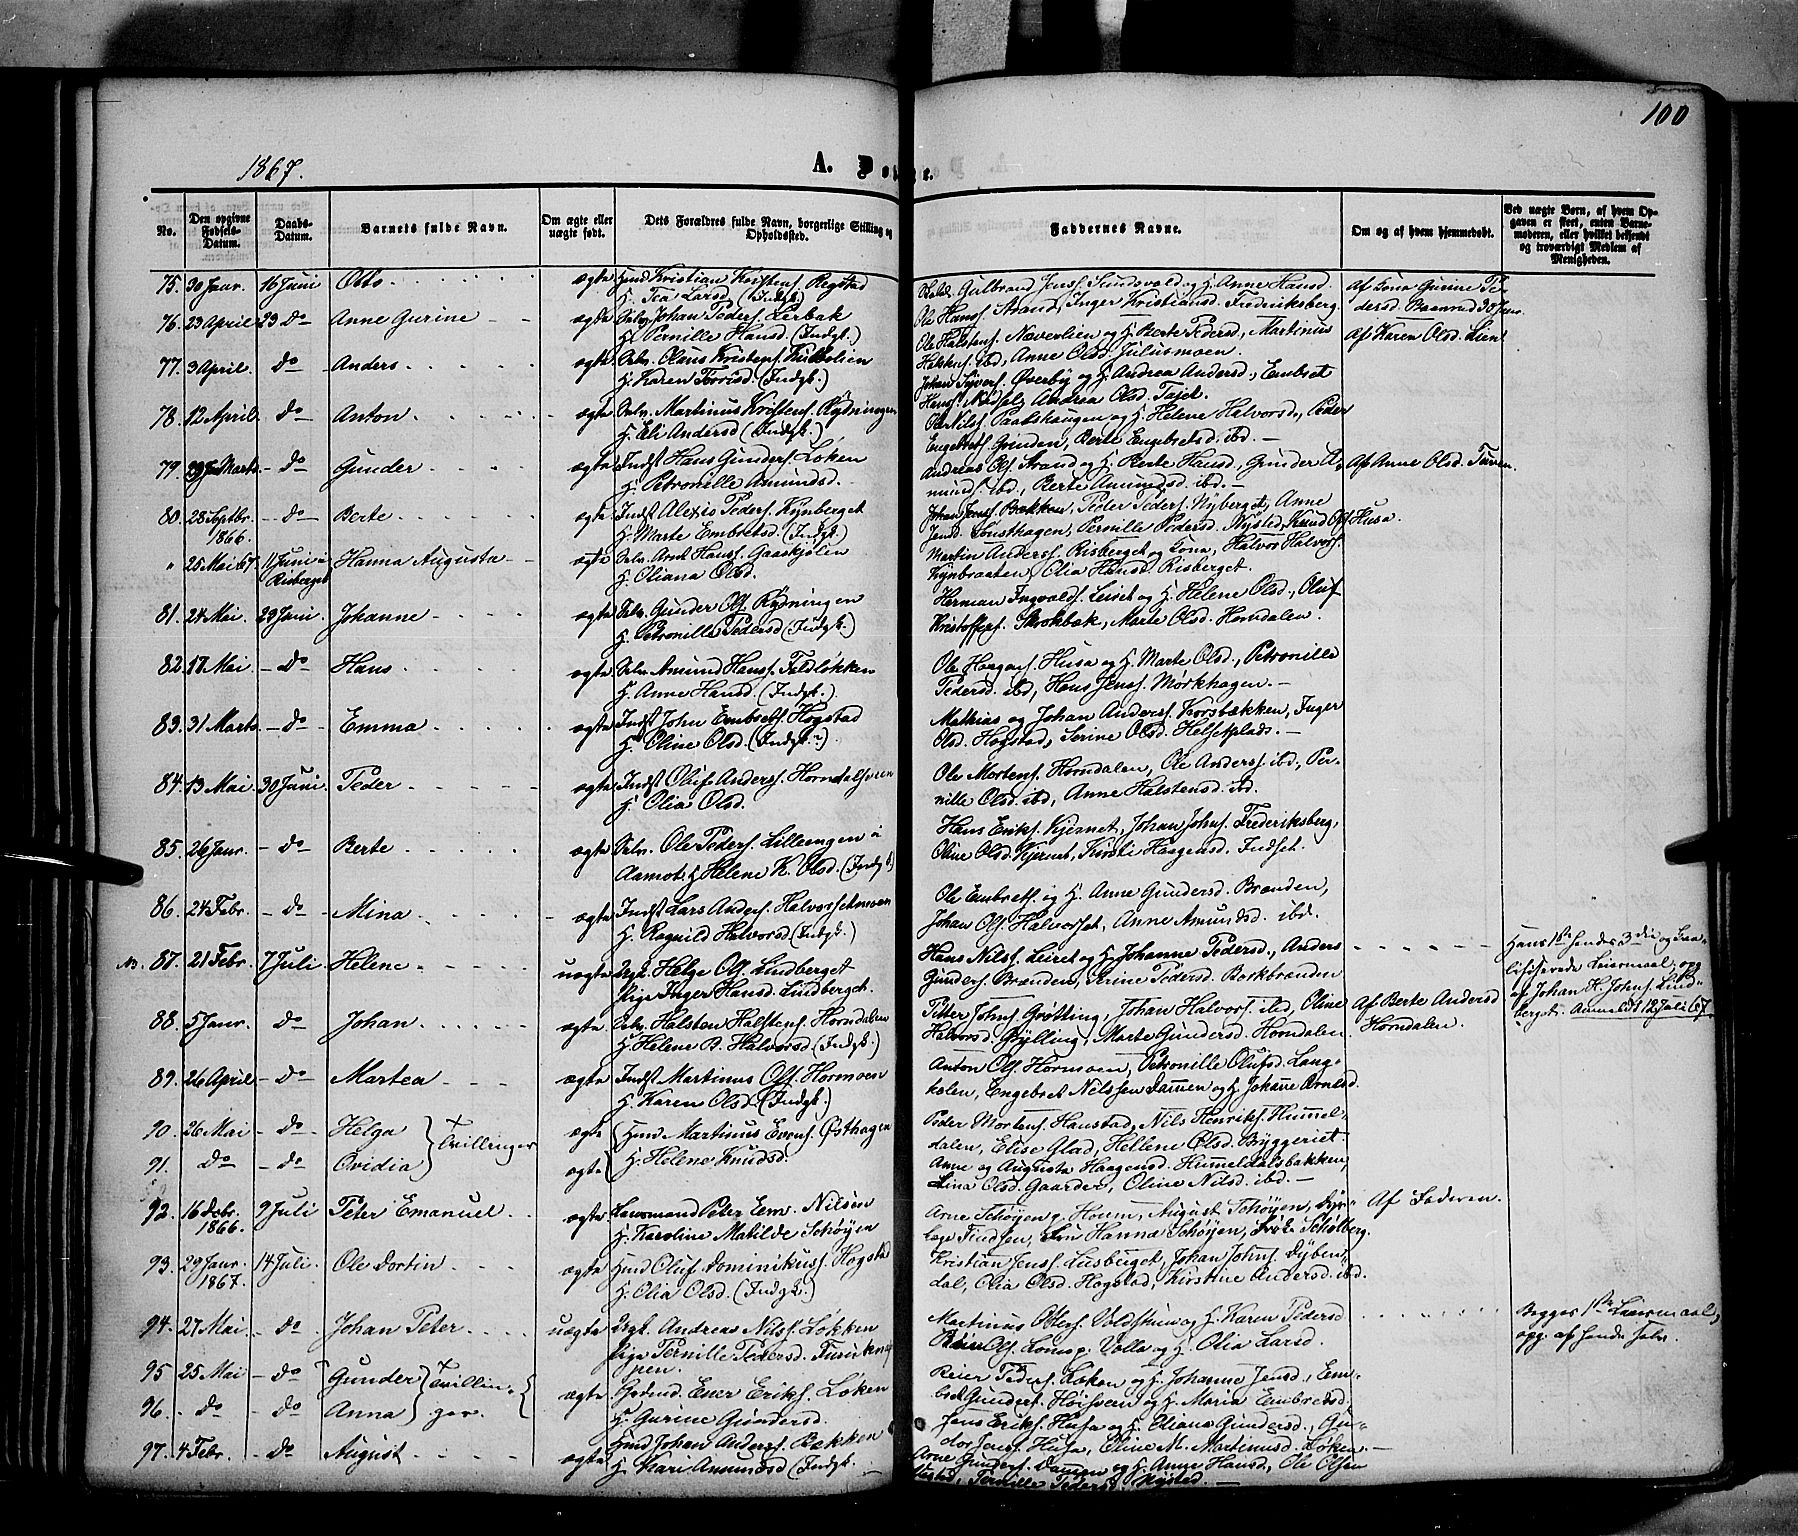 100
1867.
A. Døbte.
No.
Den opgivne Fødsels-Datum.
Daabs-Datum.
Barnets fulde Navn.
Om ægte eller uægte født.
Dets Forældres fulde Navn, borgerlige Stilling og Opholdssted.
Faddernes Navne.
Om og af hvem hjemmedøbt.
Ved uægte Børn, af hvem Opgaven er skeet, enten Barnemoderen, eller hvilket bekjendt og troværdigt Medlem af Menigheden.
75. 30 Janr. 16 Juni Otto ægte Huusm Kristian Kristens. Regstad
H. Tea Larsd. (Indgk.)
Gulbrand Jenss. Sundsvold og H. Anne Hansd.
Ole Hanss. Strand, Inger Kristiansd. Frederiksberg.
af Lona Gurine Pedersd. Braenrud 30 Janr.
76. 23 April 23 Do Anne Gurine ægte Selv. Johan Peders. Lerbak
H. Pernille Hansd. (Indgk.)
Ole Halstens. Næverlien og H. Berte Pedersd., Martinus
Halstens. ibd., Anne Olsd. Julusmoen.
af Karen Olsd. Lien
77. 3 April. do Anders ægte Selv. Olaus Kristens. Kulblien
H. Karen Torrisd. (Indgk.)
Johan Syvers. Øverby og H. Andrea Andersd., Embret
Hanss. Nødset, Andrea Olsd. Tajet.
78. 12 April. do Anton ægte Selv. Martinus Kristens. Rydningen
H. Eli Andersd. (Indgk.)
Ole Nilss. Paatshaugen og H. Helene Halvorsd., Peder
Engebrets. Grinden, Berte Engebretsd. ibd.
79. 29 Marts do Gunder ægte Indst Hans Gunders. Løken
H. Petronille Amundsd.
Andreas Ols. Strand og H. Berte Hansd., Gunder A-
munds. ibd., Berte Amundsd. ibd.
Af Anne Olsd. Tuven.
80. 28 Septbr. 1866. do Berte ægte Indst Alexis Peders. Kynberget
H. Marte Embretsd. (Indgk.)
Johan Jenss. Bækken, Peder Peders. Nyberget, Anne
Jensd. Løvsthagen, Pernille Pedersd. Nysted, Knud Ols. Husa.
" 25 Mai 67. 11 Juni i Risberget Hanna Augusta ægte Selv. Arnt Hanss. Gaaskjølen
H. Oliana Olsd.
Martin Anderss. Risberget og Lona, Halvor Halvors.
Kynbraaten, Olia Hansd. Risberget.
81. 24 Mai. 29 Juni. Johanne ægte Selv. Gunder Ols. Rydningen
H. Petronille Pedersd. (Indgk.)
Herman Ingvolds. Leiret og H. Helene Olsd., Oluf
Kristoffers. Skrokbæk, Marte Olsd. Horndalen.
82. 17 Mai do Hans ægte Selv. Amund Hanss. Feldløkken
H. Anne Hansd. (Indgk.)
Ole Haagens. Husa og H. Marte Olsd., Petronille
Pedersd. ibd., Hans Jenss. Mørkhagen.
83. 31 Marts do Emma ægte Indst John Embrets. Hogstad
H. Oline Olsd. (Indgk.)
Mathias og Johan Anderss. Korsbækken, Inger
Olsd. Hogstad, Serine Olsd. Helsetplads.
84. 13 Mai 30 Juni. Peder ægte Indst Oluf Anderss. Horndalsveen
H. Olia Olsd.
Ole Mortens. Horndalen, Ole Anderss. ibd., Per-
nille Olsd. ibd., Anne Halstensd. ibd.
85. 26 Janr. do Berte ægte Selv. Ole Peders. Lilleengen i
Aamot, H. Helene K. Olsd. (Indgk.)
Hans Eriks. Kjernet, Johan Johns. Frederiksberg,
Oline Olsd. Kjernet, Kirsti Haagensd. Indset.
86. 24 Febr. do Mina ægte Indst Lars Anders. Halvorsetmoen
H. Ragnild Halvorsd. (Indgk.)
Ole Embrets. og H. Anne Gundersd. Brænden,
Johan Ols. Halvorset, Anne Amundsd. ibd.
NB. 87. 21 Febr. 7 Juli Helene uægte Ungk. Helge Ols. Lindberget
Pige Inger Hansd. Lindberget.
Hans Nilss. Leiret og H. Johanne Pedersd., Anders
Gunders. Brænden, Serine Pedersd. Borkbrænden
Hans 1ste hendes 3die og Lea-
lidserede Leiermaal; opg
af Johan H. Johns. Lind-
berget. Anmeldt 12 Juli 67.
88. 5 Janr. do Johan ægte Selv. Halsten Halstens. Horndalen
H. Helene B. Halvorsd. (Indgk.)
Petter Johns. Grøtting, Johan Halvors. ibd., Oline
Halvorsd. Gylling, Marte Gundersd. Horndalen
Af Berte Andersd.
Horndalen.
89. 26 April do Martea ægte Indst Martinus Ols. Hormoen
H. Karen Olsd. (Indgk.)
Anton Ols. Hormoen, Petronille Olufsd. Lang-
kolen, Engebret Nilssen Dammen og H. Johanne Arnesd.
90. 26 Mai do Helga } Tvillinger ægte Huusm Martinus Evens. Østhagen
91. do do Ovidia ægte H. Helene Knudsd.
Peder Mortens. Haustad, Nils Henriks. Hummel-
dalen, Elise Glad, Hellene Olsd. Bryggeriet.
Anne og Augusta Haagensd. Hummeldalsbakken,
Lina Olsd. Gaarder, Oline Nilsd. ibd.
92. 16 Debr. 1866. 9 Juli Peter Emanuel ægte Lensmand Peter Em. Nilsen
H. Karoline Matilde Schøyen
Arne Schøyen g. Houm, August Schøyen, Dyr-
læge Findsen, Hanna Schøyen, Schølberg.
Af Faderen.
93. 29 Janr. 1867. 14 Juli. Ole Dortin ægte Huusm Oluf Dominikuss. Hogstad
H. Olia Olsd. (Indgk.)
Kristian Jenss. Lusbuget, Johan Johns. Dyben-
dal, Olia Olsd. Hogstad, Kirstine Andersd. ibd.
94. 27 Mai do Johan Peter uægte Ungk. Andreas Nilss. Løkken
Pige Pernille Pedersd. Furuknap-
pen.
Martinus Olsr. Voldstuen og H. Karen Pedersd.
Ols. Lomsp. Volla og H. Olia Larsd.
Begges 1ste Leiermaal,
opg. af hendes Fader.
95 25 Mai do Gunder } Tvillin-
96. do do Anna } ger. ægte Grdmd. Ener Eriks. Løken
H. Gurine Gundersd.
Reier Peders. Løken og H. Johanne Jensd., Em-
bret Gunders. Høisveen og H. Maria Embretsd.
Jens Eriks. Husa og H. Eliana Gundersd., Gu-
dor Jenss. Husa, Oline M. Martinusd. Løken.
97. 4 Febr. do August ægte Huusm Johan Anders. Bækken
H. Kari Amundsd (Indgk.)
Arne Gunders. Dammen og H. Anne Hansd., Ole Olsen
Nysted, Pernille Pedersd. Nysted.